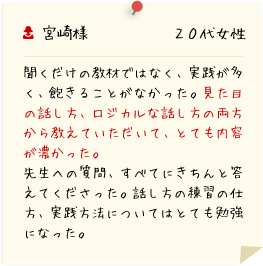 宮崎様 20代女性
聞くだけの教材ではなく、実践が多
く、飽きることがなかった。見た目
の話し方、ロジカルな話し方の両方
から教えていただいて、とても内容
が濃かった。
先生への質問、すべてにきちんと答
えてくださった。話し方の練習の仕
方、実践方法についてはとても勉強
になった。